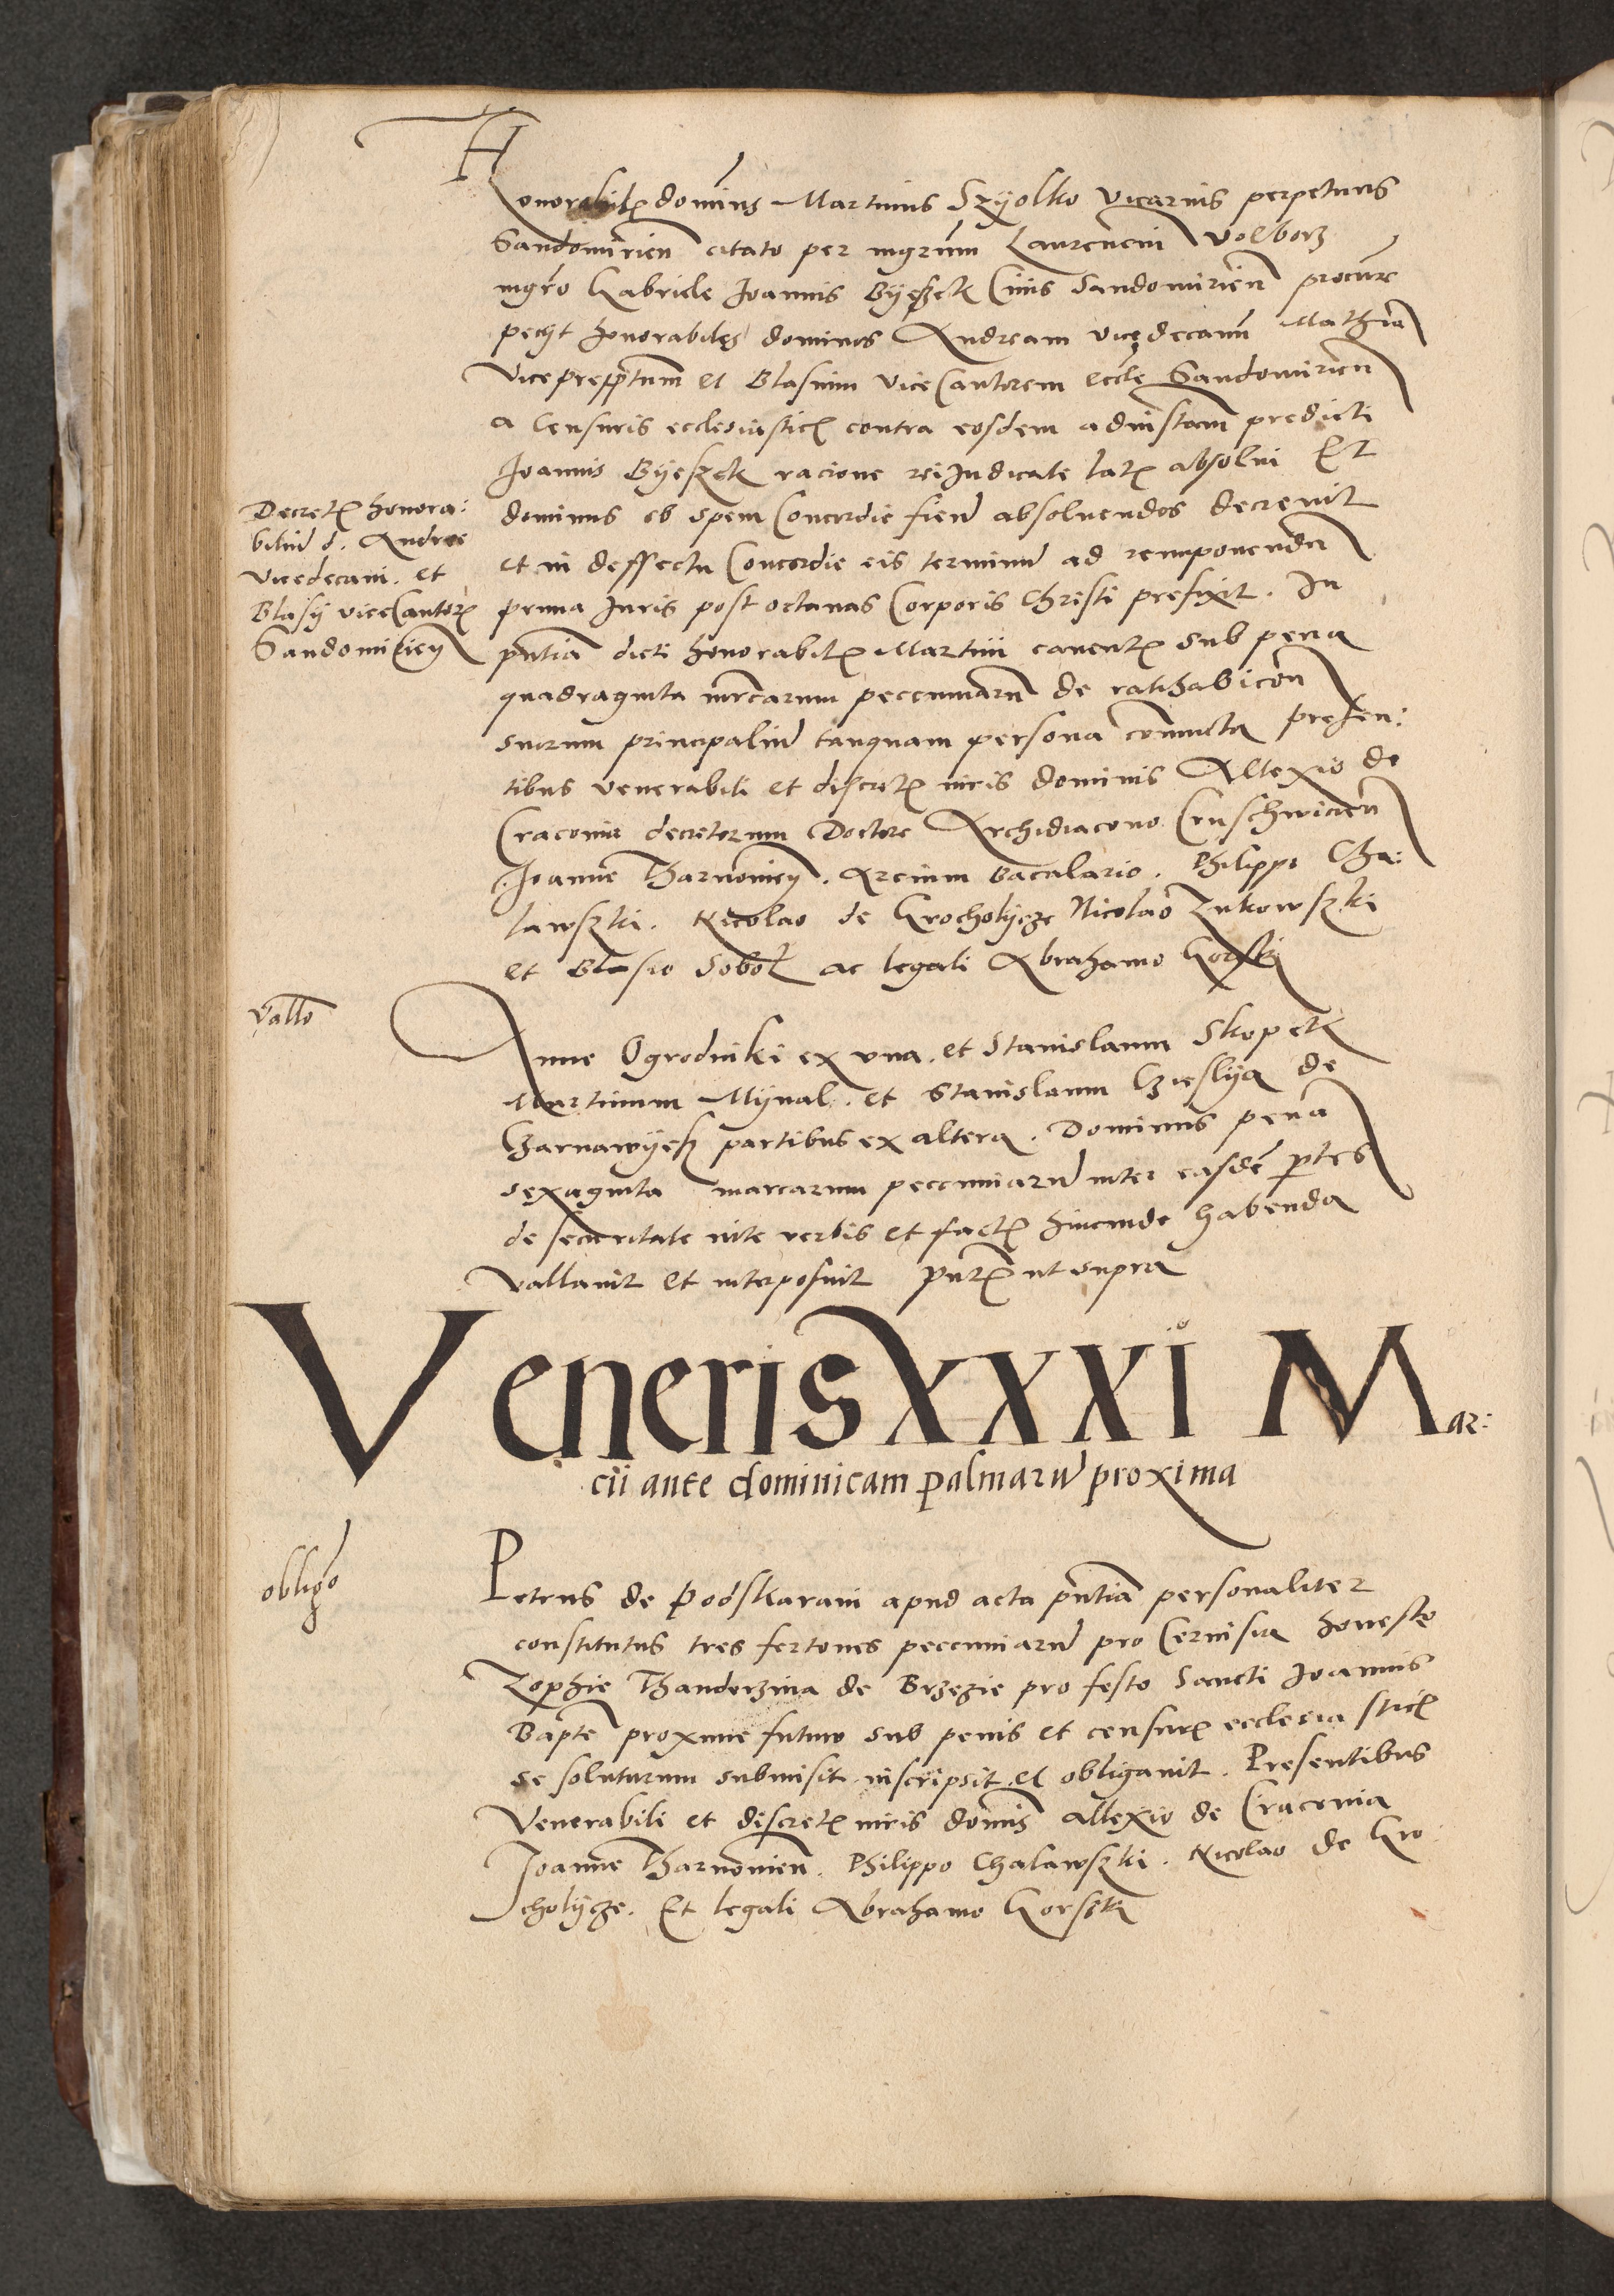 Honorabilis dominus Martinus Szyolko vicarius perpetuus
Sandomirien citato per mgrum Laurencium Volborz
mgro Gabriele Joannis Byeszek Civis Sandomirien procure
pecyt honorabiles dominos Andream vicedecanum Mathiam
Vicepreptum et Blasium viceCantorem eccle Sandomirien
a Censuris ecclesiasticis contra eosdem ad instam predicti
Joannis Byeszek racione rei Judicate latis absolui Et
dominus ob spem Concordie fiend absoluendos decreuit
et in deffectu Concordie eis terminum ad reimponendum
prima Juris post octauas Corporis Christi prefixit. In
pntia dicti honorabilis Martini cauentis sub pena
quadraginta mrcarum pecuniarum de ratihabicion
suorum principalium tanquam persona coniuncta presen:
tibus venerabili et discretis viris dominis Allexio de
Cracouia decretorum Doctore Archidiacono Cruschwicien
Joanne Tharnouiey. Arcium bacalario. Philippo Cha:
lawszki. Nicolao de Grocholycze Nicolao Zukowszki
et Blasio Sobol ac legali Abrahamo Gorski
Decretum honora:
bilium d. Andree
Vicedecani. et
Blasij viceCantoris
Sandomiriey
Vallo
Anne Ogrodniki ex vna. et Stanislaum Skopek
Martinum Mynal. et Stanislaum Czieslya de
Czarnawyesz partibus ex altera. Dominus pena
sexaginta marcarum pecuniarum inter easdem partes
de securitate vite verbis et factis hincinde habenda
Vallauit et interposuit pntibus ut supra
Veneris XXXI Mar:
cii ante dominicam palmarum proxima
obligo
Petrus de Podskarani apud acta pntia personaliter
constitutus tres fertones pecuniarum pro Ceruisia honeste
Zophie Thandorzina de Brzezie pro festo Sancti Joannis
Bapte proxime futuro sub penis et censuris ecclesiasticis
se soluturum submisit inscripsit et obligauit. Presentibus
Venerabili et discretis viris domis Allexio de Cracouia
Joanne Tharnouien. Philippo Chalawszki. Nicolao de Gro
cholycze. Et legali Abrahamo Gorski